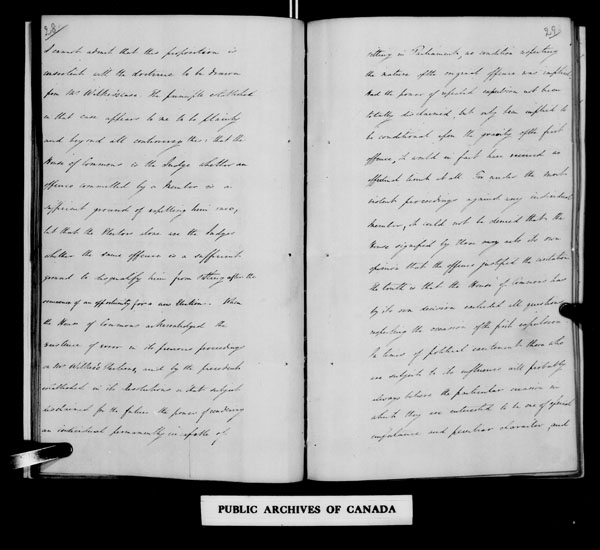 28
I cannot admit that this proposition is
consistent with the doctrine to be drawn
from Mr Wilkes's case. The principle established
in that case appears to me to be plainly
and beyond all controversy this: that the
House of Commons is the Judge whether an
offence committed by a Member is a
sufficient ground of expelling him once,
but that the Electors alone are the Judges
whether the same offence is a sufficient
ground to disqualify him from sitting after the
occurrence of an opportunity for a new Election. When
the House of Commons acknowledged the
existence of error in its previous proceedings
on Mr Wilkes's Elections, and by the precedent
established in its Resolutions on that subject
disclaimed for the future the power of rendering
an individual permanently incapable of
29
sitting in Parliament, no condition respecting
the nature of the original offence was implied.
Had the power of repeated expulsion not been
totally disclaimed, but only been implied to
be conditional upon the gravity of the first
offence, it would in fact have received no
effectual limit at all. For under the most
violent proceedings against any individual
Member, it could not be denied that the
House signified by those very acts its own
opinion that the offence justified the
the truth is that the House of Commons has
by its own decision excluded all questions
respecting the occasion of the first expulsion
In times of political excitement those who
are subject to its influence will probably
always believe the particular occasion in
which they are interested to be one of special
importance and peculiar character, and
PUBLIC ARCHIVES OF CANADA